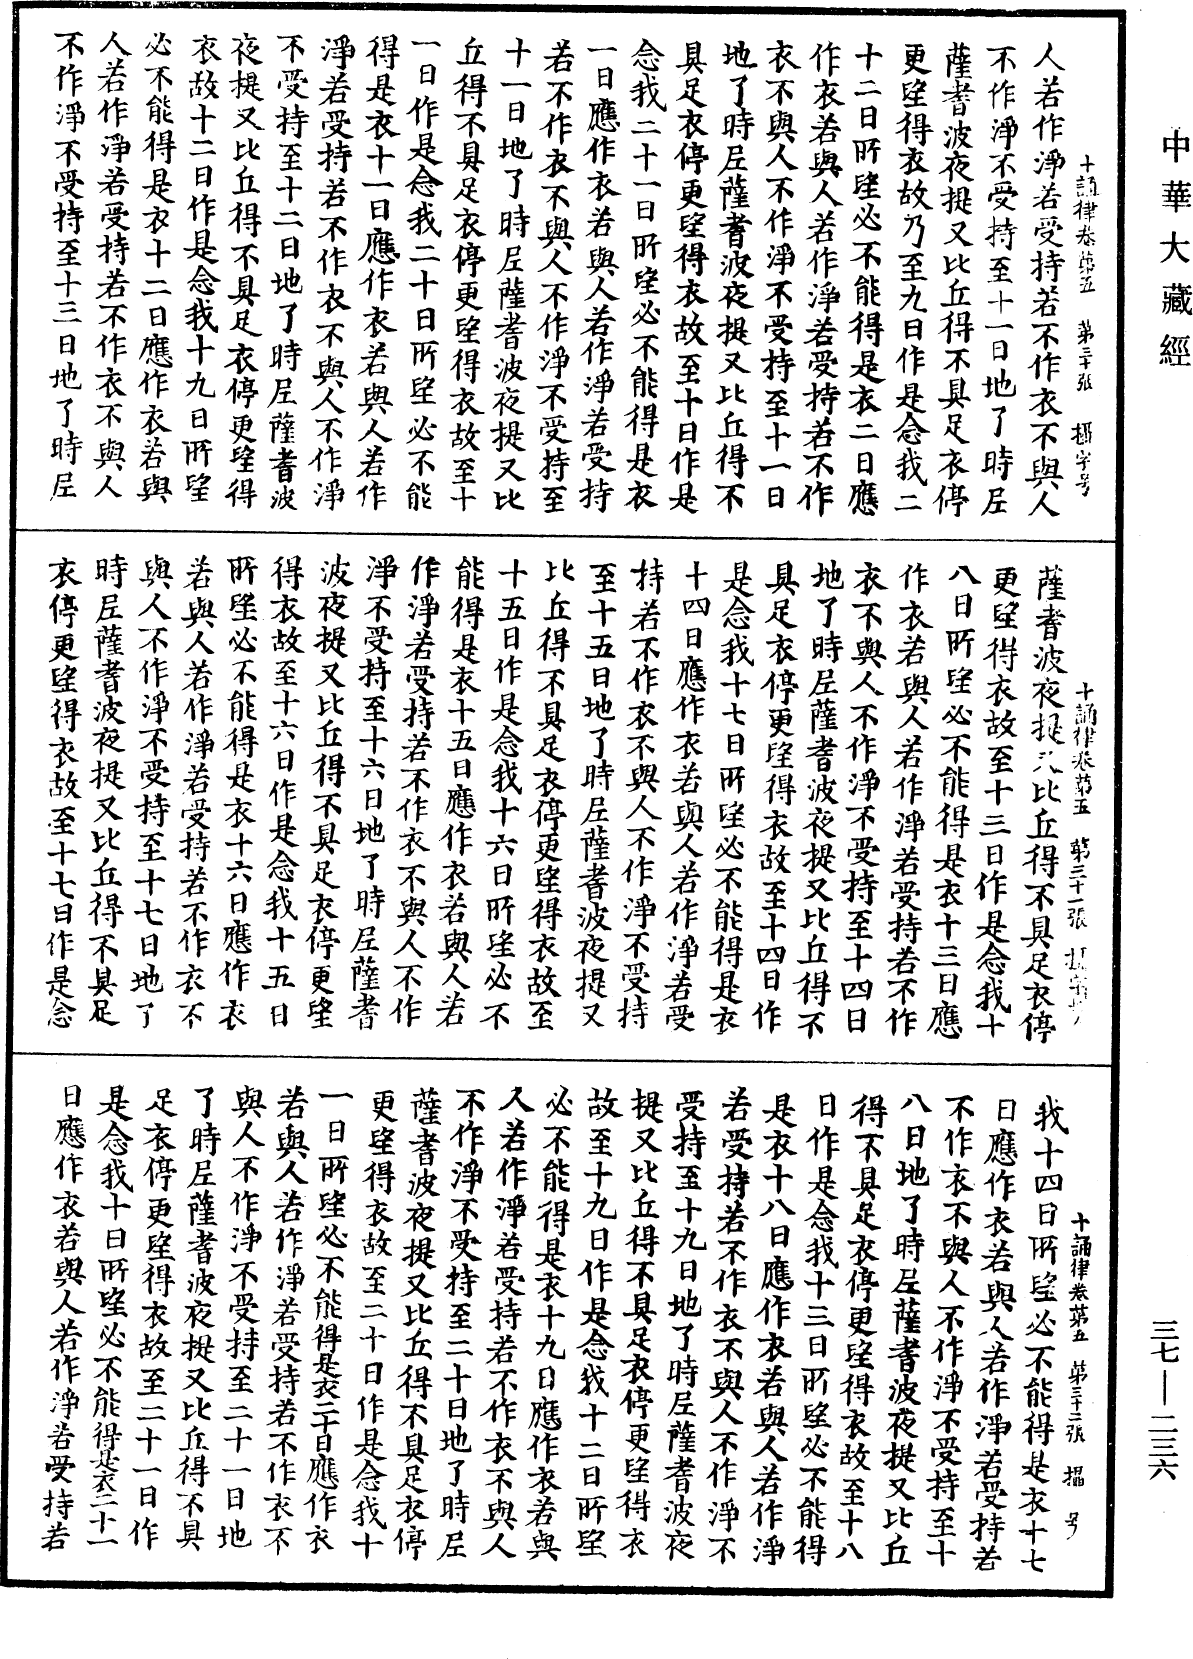 中華大藏經
十誦律卷第五　第三十張　攝字号
人若作淨若受持若不作衣不與人
不作淨不受持至十一日地了時尼
薩耆波夜提又比丘得不具足衣停
更望得衣故乃至九日作是念我二
十二日所望必不能得是衣二日應
作衣若與人若作淨若受持若不作
衣不與人不作淨不受持至十一日
地了時尼薩耆波夜提又比丘得不
具足衣停更望得衣故至十日作是
念我二十一日所望必不能得是衣
一日應作衣若與人若作淨若受持
若不作衣不與人不作淨不受持至
十一日地了時尼薩耆波夜提又比
丘得不具足衣停更望得衣故至十
一日作是念我二十日所望必不能
得是衣十一日應作衣若與人若作
淨若受持若不作衣不與人不作淨
不受持至十二日地了時尼薩耆波
夜提又比丘得不具足衣停更望得
衣故十二日作是念我十九日所望
必不能得是衣十二日應作衣若與
人若作淨若受持若不作衣不與人
不作淨不受持至十三日地了時尼
十誦律卷第五　第三十一張
薩耆波夜提又比丘得不具足衣停
更望得衣故至十三日作是念我十
八日所望必不能得是衣十三日應
作衣若與人若作淨若受持若不作
衣不與人不作淨不受持至十四日
地了時尼薩耆波夜提又比丘得不
具足衣停更望得衣故至十四日作
是念我十七日所望必不能得是衣
十四日應作衣若與人若作淨若受
持若不作衣不與人不作淨不受持
至十五日地了時尼薩耆波夜提又
比丘得不具足衣停更望得衣故至
十五日作是念我十六日所望必不
能得是衣十五日應作衣若與人若
作淨若受持若不作衣不與人不作
淨不受持至十六日地了時尼薩耆
波夜提又比丘得不具足衣停更望
得衣故至十六日作是念我十五日
所望必不能得是衣十六日應作衣
若與人若作淨若受持若不作衣不
與人不作淨不受持至十七日地了
時尼薩耆波夜提又比丘得不具足
衣停更望得衣故至十七日作是念
十誦律卷第五　第三十二張　攝　号
我十四日所望必不能得是衣十七
日應作衣若與人若作淨若受持若
不作衣不與人不作淨不受持至十
八日地了時尼薩耆波夜提又比丘
得不具足衣停更望得衣故至十八
日作是念我十三日所望必不能得
是衣十八日應作衣若與人若作淨
若受持若不作衣不與人不作淨不
受持至十九日地了時尼薩耆波夜
提又比丘得不具足衣停更望得衣
故至十九日作是念我十二日所望
必不能得是衣十九日應作衣若與
人若作淨若受持若不作衣不與人
不作淨不受持至二十日地了時尼
薩耆波夜提又比丘得不具足衣停
更望得衣故至二十日作是念我十
一日所望必不能得是衣二十日應作衣
若與人若作淨若受持若不作衣不
與人不作淨不受持至二十一日地
了時尼薩耆波夜提又比丘得不具
足衣停更望得衣故至二十一日作
是念我十日所望必不能得是衣二十一
日應作衣若與人若作淨若受持若
三七—二三六